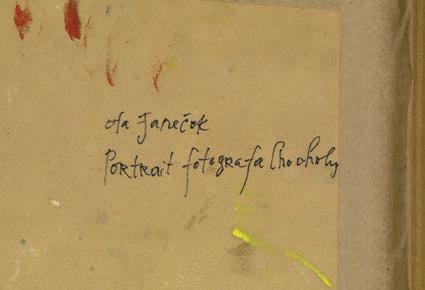 ota Janeček
Portrait fotografa Chocholy